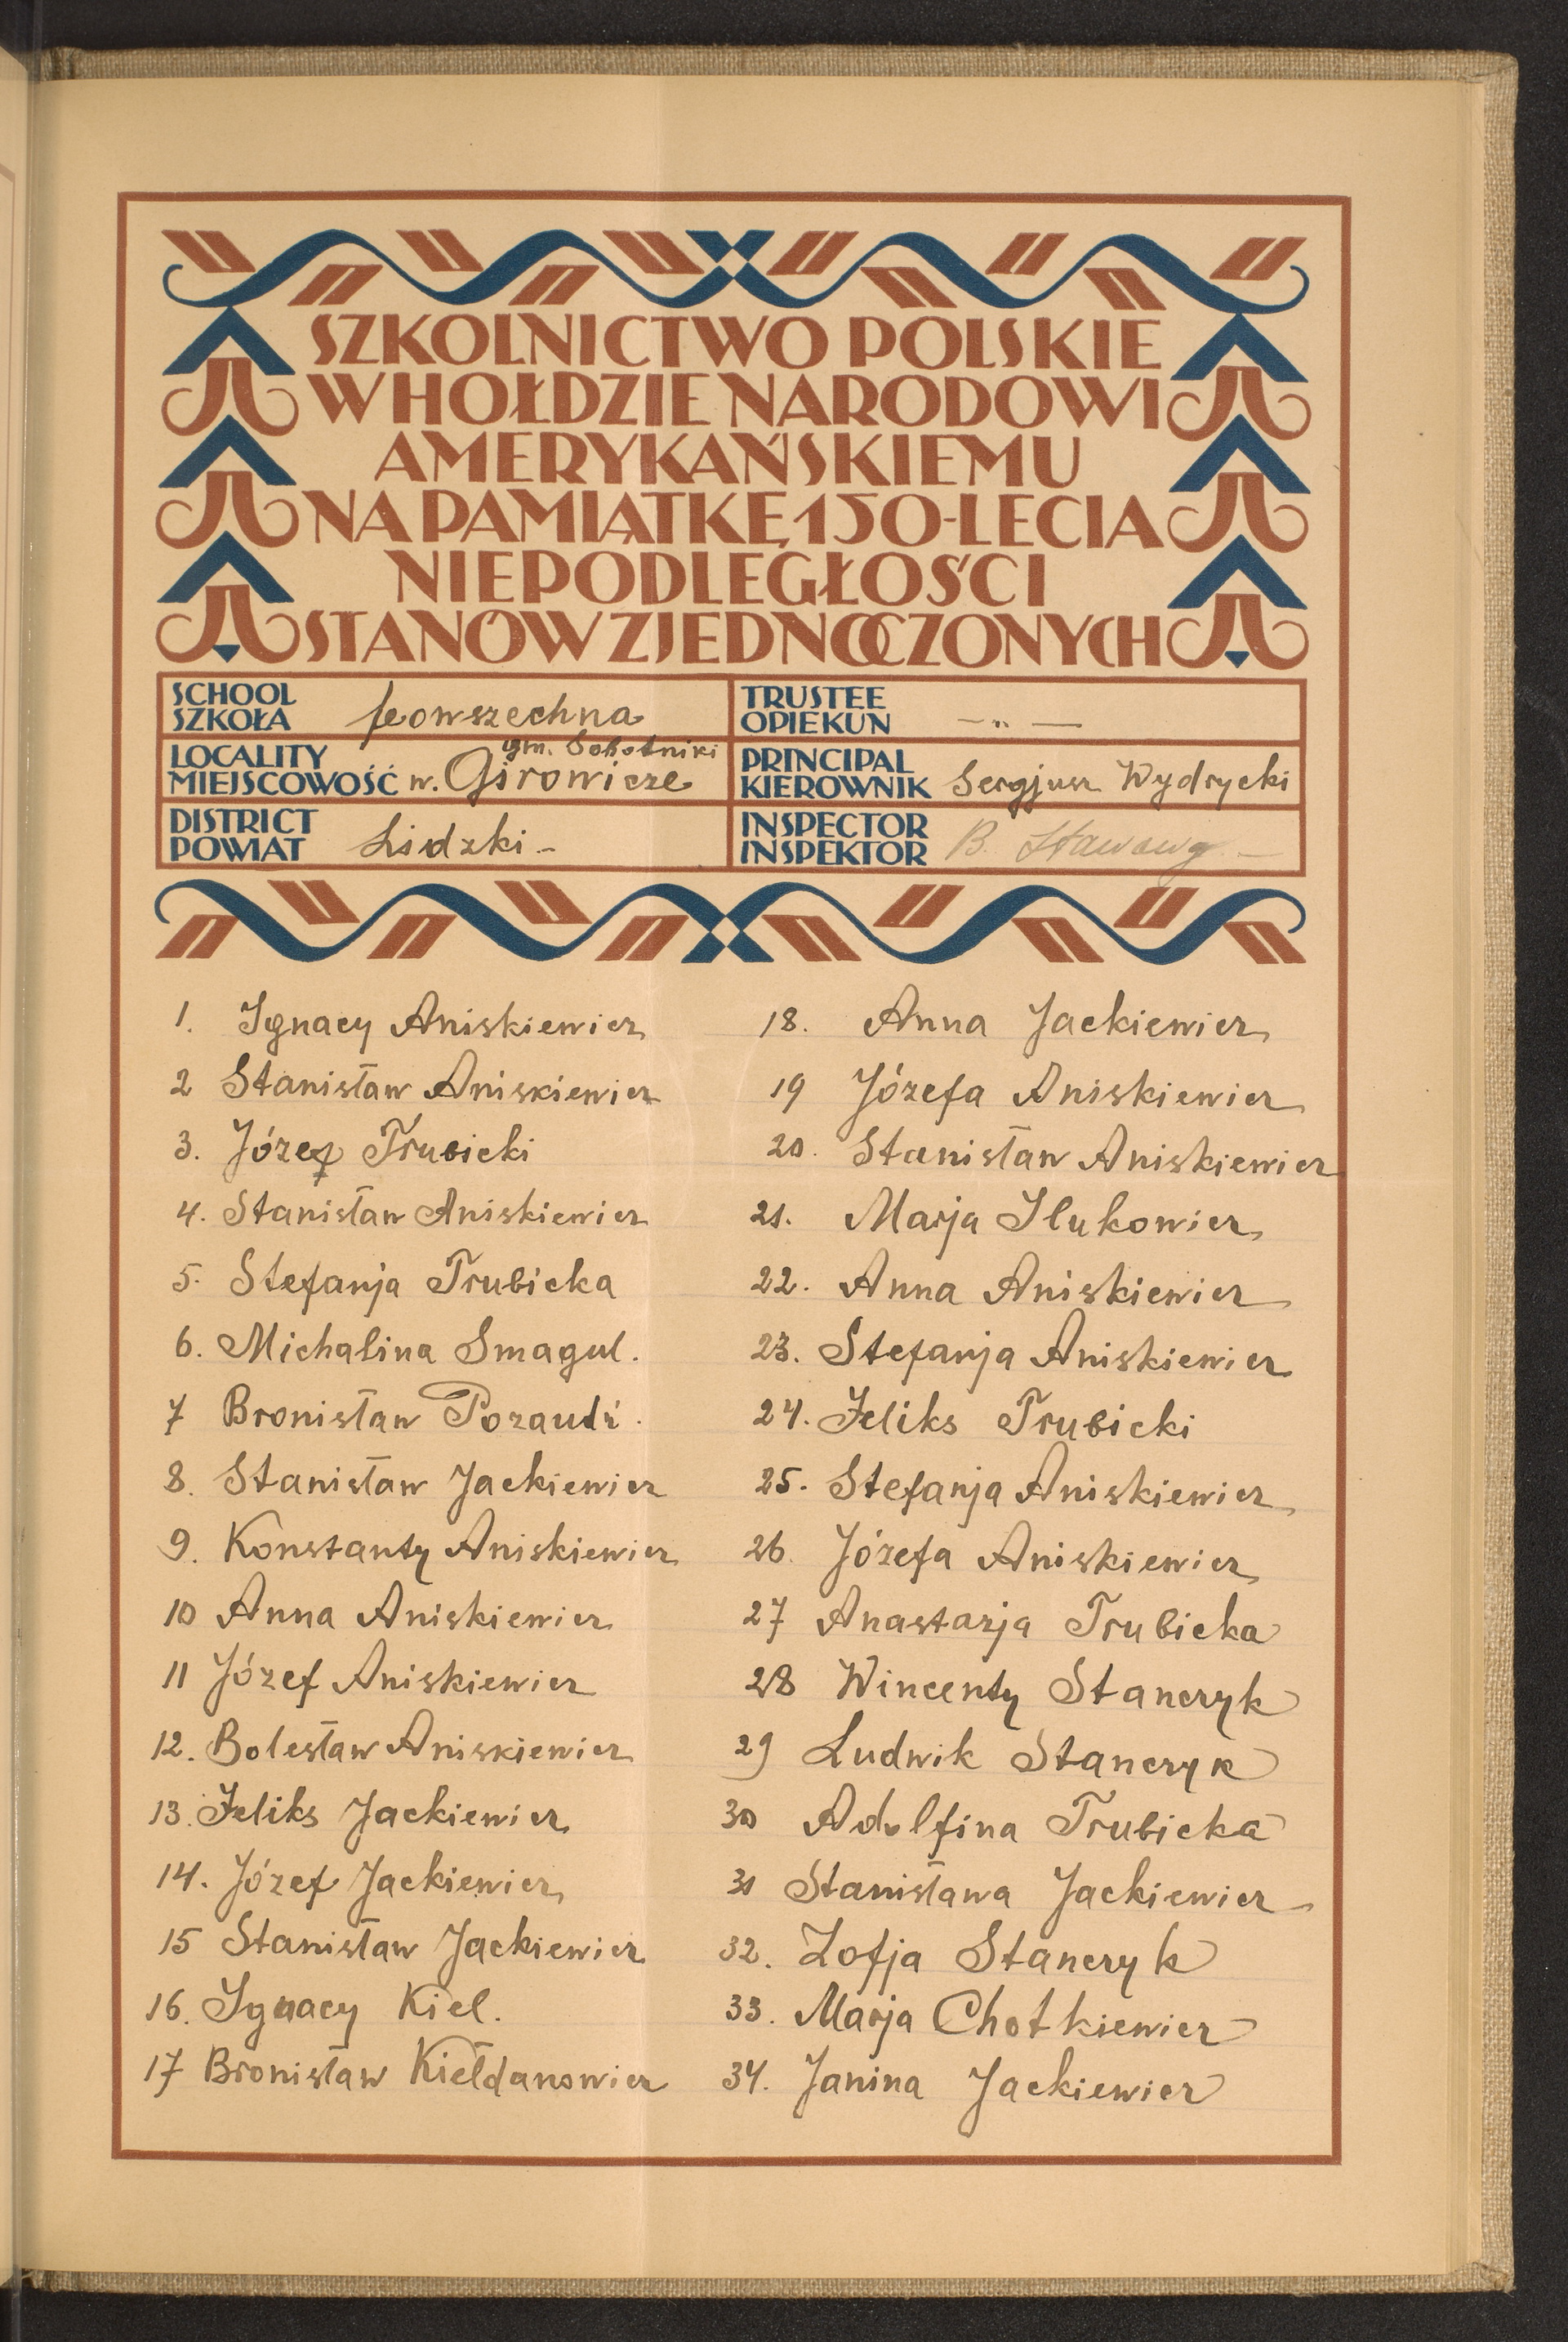 SZKOLNICTWO POLSKIE
W HOŁDZIE NARODOWI
AMERYKAŃSKIEMU
NA PAMIĄTKĘ 150-LECIA
NIEPODLEGŁOŚCI
STANÓW ZJEDNOCZONYCH
SCHOOL
SZKOŁA powszechna
LOCALITY gm. Sobotniki
MIEJSCOWOŚĆ w. Girowicze
DISTRICT
POWIAT Lidzki -
TRUSTEE
OPIEKUN — „ —
PRINCIPAL
KIEROWNIK Sergjusz Wydrycki
INSPECTOR
INSPEKTOR B. Stawowy -
1. Ignacy Aniskiewicz
2 Stanisław Aniskiewicz
3. Józef Trubicki
4. Stanisław Aniskiewicz
5. Stefanja Trubicka
6. Michalina Smagul.
7 Bronisław
8. Stanisław Jackiewicz
9. Konstanty Aniskiewicz
10 Anna Aniskiewicz
11 Józef Aniskiewicz
12. Bolesław Aniskiewicz
13. Feliks Jackiewicz
14. Józef Jackiewicz
15 Stanisław Jackiewicz
16. Ignacy Kiel.
17 Bronisław Kiełdanowicz
18. Anna Jackiewicz
19 Józefa Aniskiewicz
20. Stanisław Aniskiewicz
21. Marja Ilukowicz
22. Anna Aniskiewicz
23. Stefanja Aniskiewicz
24. Feliks Trubicki
25. Stefanja Aniskiewicz
26. Józefa Aniskiewicz
27 Anastazja Trubicka
28 Wincenty Stanczyk
29 Ludwik Stanczyk
30 Adolfina Trubicka
31 Stanisława Jackiewicz
32. Zofja Stanczyk
33. Marja Chotkiewicz
34. Janina Jackiewicz